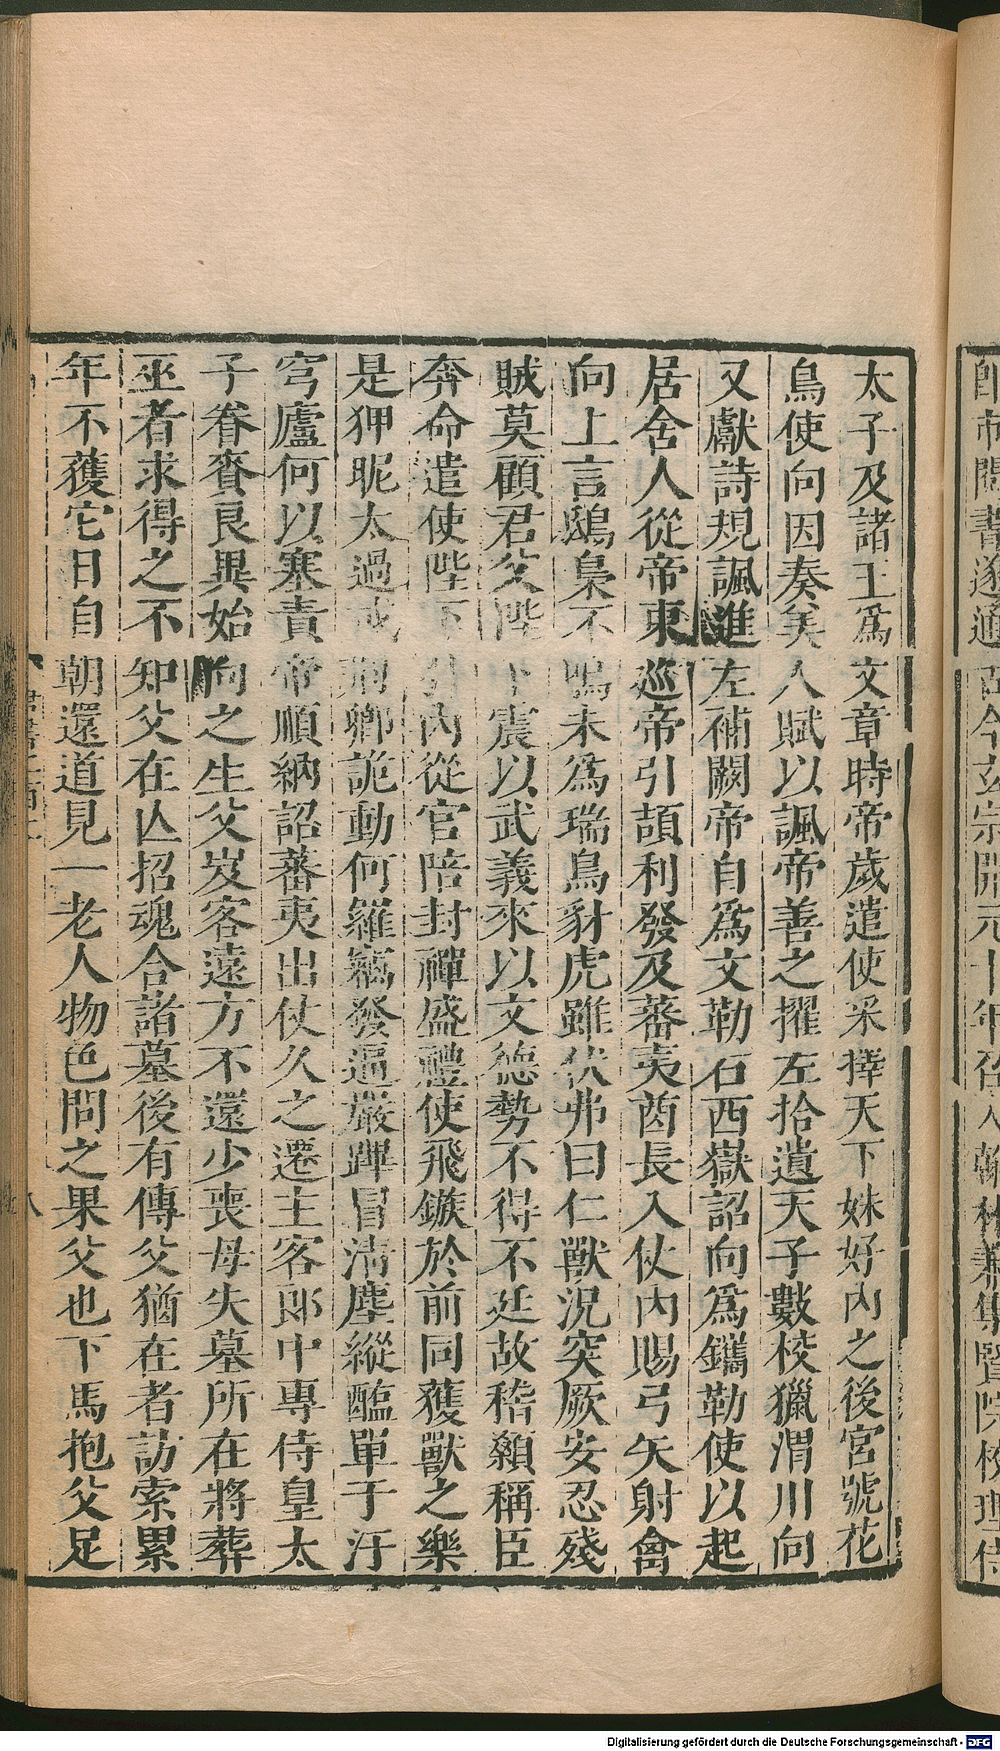 太子及諸王爲文章時帝歲遣使采擇天下姝好內之後宮號花
鳥使向因奏美人賦以諷帝善之擢左拾遺天子數校獵渭川向
又獻詩規諷進左補闕帝自爲文勒石西嶽詔向爲鐫勒使以起
居舍人從帝東巡帝引頡利發及蕃夷酋長入仗內賜弓矢射禽
向上言鴟梟不鳴未爲瑞鳥豺虎雖伏弗曰仁獸況突厥安忍殘
賊莫顧君父陛下震以武義來以文德勢不得不廷故稽顙稱臣
奔命遣使陛下引內從官陪封禪盛禮使飛鏃於前同獲獸之樂
是狎昵太過或荊卿詭動何羅竊發逼嚴蹕冒清塵縱醢單于汙
穹廬何以塞責帝順納詔蕃夷出仗久之遷主客郎中專侍皇太
子眷賚良異始向之生父岌客遠方不還少喪母失墓所在將葬
巫者求得之不知父在亾招魂合諸墓後有傳父猶在者訪索累
年不獲它日自朝還道見一老人物色問之果父也下馬抱父足
八
書遂通古今玄宗開元十年召入翰林兼集賢院校理侍
Digitalisierung gefördert durch die Deutsche Forschungsgemeinschaft - DFG